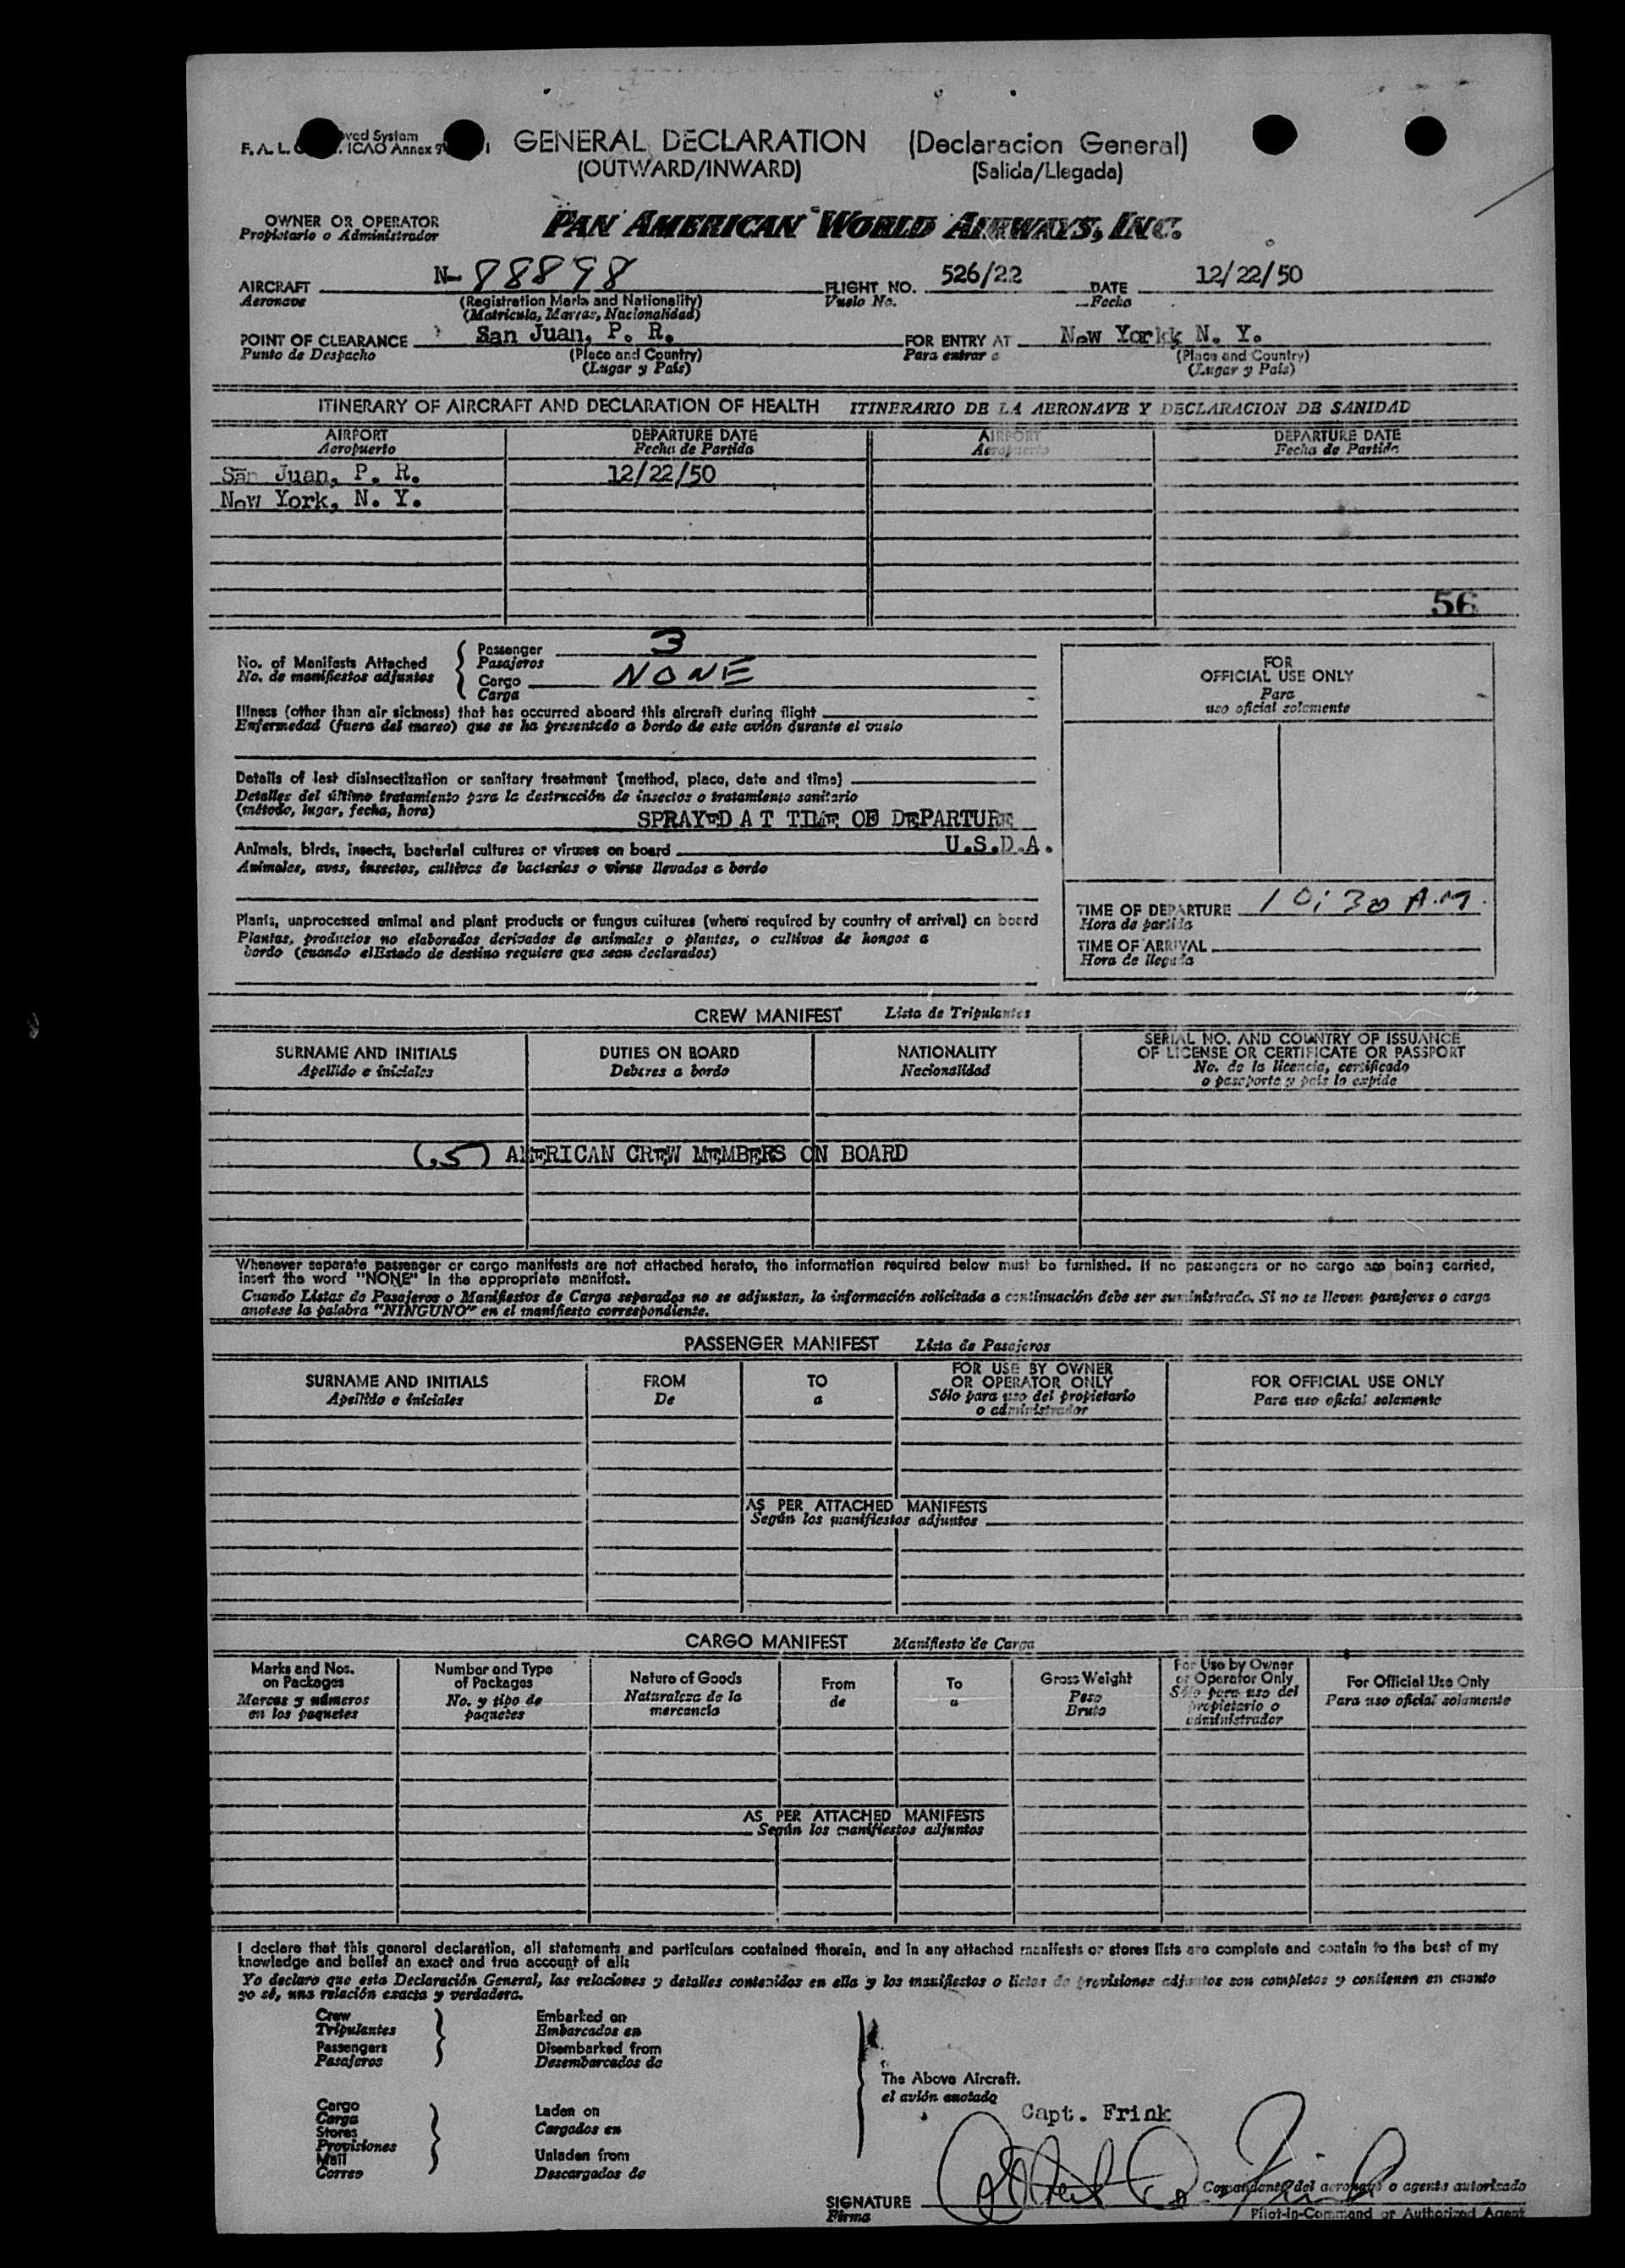 F. A. L. ICAO Annex 9
GENERAL DECLARATION (Declaracion General)
(OUTWARD/INWARD) (Salida/Llegada)
OWNER OR OPERATOR
Propietario o Administrador
PAN AMERICAN WORLD AIRWAYS, INC.
AIRCRAFT N-88898 FLIGHT NO. 526/22 DATE 12/22/50
Aeronave (Registration Marks and Nationality) Vuelo No. Fecha
(Matricula, Marcas, Nacionalidad)
POINT OF CLEARANCE San Juan, P. R. FOR ENTRY AT New York, N. Y.
Punto de Despacho (Place and Country) Para entrar a (Place and Country)
(Lugar y País) (Lugar y País)
ITINERARY OF AIRCRAFT AND DECLARATION OF HEALTH ITINERARIO DE LA AERONAVE Y DECLARACION DE SANIDAD
AIRPORT DEPARTURE DATE AIRPORT DEPARTURE DATE
Aeropuerto Fecha de Partida Aeropuerto Fecha de Partida
San Juan, P. R. 12/22/50
New York, N. Y.
56
No. of Manifests Attached Passenger 3
No. de manifiestos adjuntos Pasajeros
Cargo NONE
Carga
FOR
OFFICIAL USE ONLY
Para
uso oficial solamente
Illness (other than air sickness) that has occurred aboard this aircraft during flight
Enfermedad (fuera del mareo) que se ha presentado a bordo de este avión durante el vuelo
Details of last disinsectization or sanitary treatment (method, place, date and time)
Detalles del último tratamiento para la destrucción de insectos o tratamiento sanitario
(método, lugar, fecha, hora) SPRAYED A T TIME OF DEPARTURE
Animals, birds, insects, bacterial cultures or viruses on board U.S.D.A.
Animales, aves, insectos, cultivos de bacterias o virus llevados a bordo
Plants, unprocessed animal and plant products or fungus cultures (where required by country of arrival) on board
Plantas, productos no elaborados derivados de animales o plantas, o cultivos de hongos a
bordo (cuando elEstado de destino requiere que sean declarados)
TIME OF DEPARTURE 10:30 A.M.
Hora de partida
TIME OF ARRIVAL
Hora de llegada
CREW MANIFEST Lista de Tripulantes
SURNAME AND INITIALS DUTIES ON BOARD NATIONALITY SERIAL NO. AND COUNTRY OF ISSUANCE
OF LICENSE OR CERTIFICATE OR PASSPORT
Apellido e iniciales Deberes a bordo Nacionalidad No. de la licencia, certificado
o pasaporte y país lo expide
(5) AMERICAN CREW MEMBERS ON BOARD
Whenever separate passenger or cargo manifests are not attached hereto, the information required below must be furnished. If no passengers or no cargo are being carried,
insert the word "NONE" in the appropriate manifest.
Cuando Listas de Pasajeros o Manifiestos de Carga separados no se adjuntan, la información solicitada a continuación debe ser suministrada. Si no se lleven pasajeros o carga
anotese la palabra "NINGUNO" en el manifiesto correspondiente.
PASSENGER MANIFEST Lista de Pasajeros
SURNAME AND INITIALS FROM TO FOR USE BY OWNER
OR OPERATOR ONLY FOR OFFICIAL USE ONLY
Apellido e iniciales De a Sólo para uso del propietario
o administrador Para uso oficial solamente
AS PER ATTACHED MANIFESTS
Según los manifiestos adjuntos
CARGO MANIFEST Manifiesto de Carga
Marks and Nos.
on Packages
Marcas y números
en los paquetes
Number and Type
of Packages
No. y tipo de
paquetes
Nature of Goods
Naturaleza de la
mercancía
From
de
To
a
Gross Weight
Peso
Bruto
For Use by Owner
or Operator Only
Sólo para uso del
propietario o
administrador
For Official Use Only
Para uso oficial solamente
AS PER ATTACHED MANIFESTS
Según los manifiestos adjuntos
I declare that this general declaration, all statements and particulars contained therein, and in any attached manifests or stores lists are complete and contain to the best of my
knowledge and belief an exact and true account of all:
Yo declaro que esta Declaración General, las relaciones y detalles contenidos en ella y los manifiestos o listas de provisiones adjuntos son completos y contienen en cuanto
yo sé, una relación exacta y verdadera.
Crew
Tripulantes
Passengers
Pasajeros
Embarked on
Embarcados en
Disembarked from
Desembarcados de
The Above Aircraft.
el avión anotado
Cargo
Carga
Stores
Provisiones
Mail
Correo
Laden on
Cargados en
Unladen from
Descargados de
Capt. Frink
SIGNATURE
Firma
Comandante del aeronave o agente autorizado
Pilot-in-Command or Authorized Agent